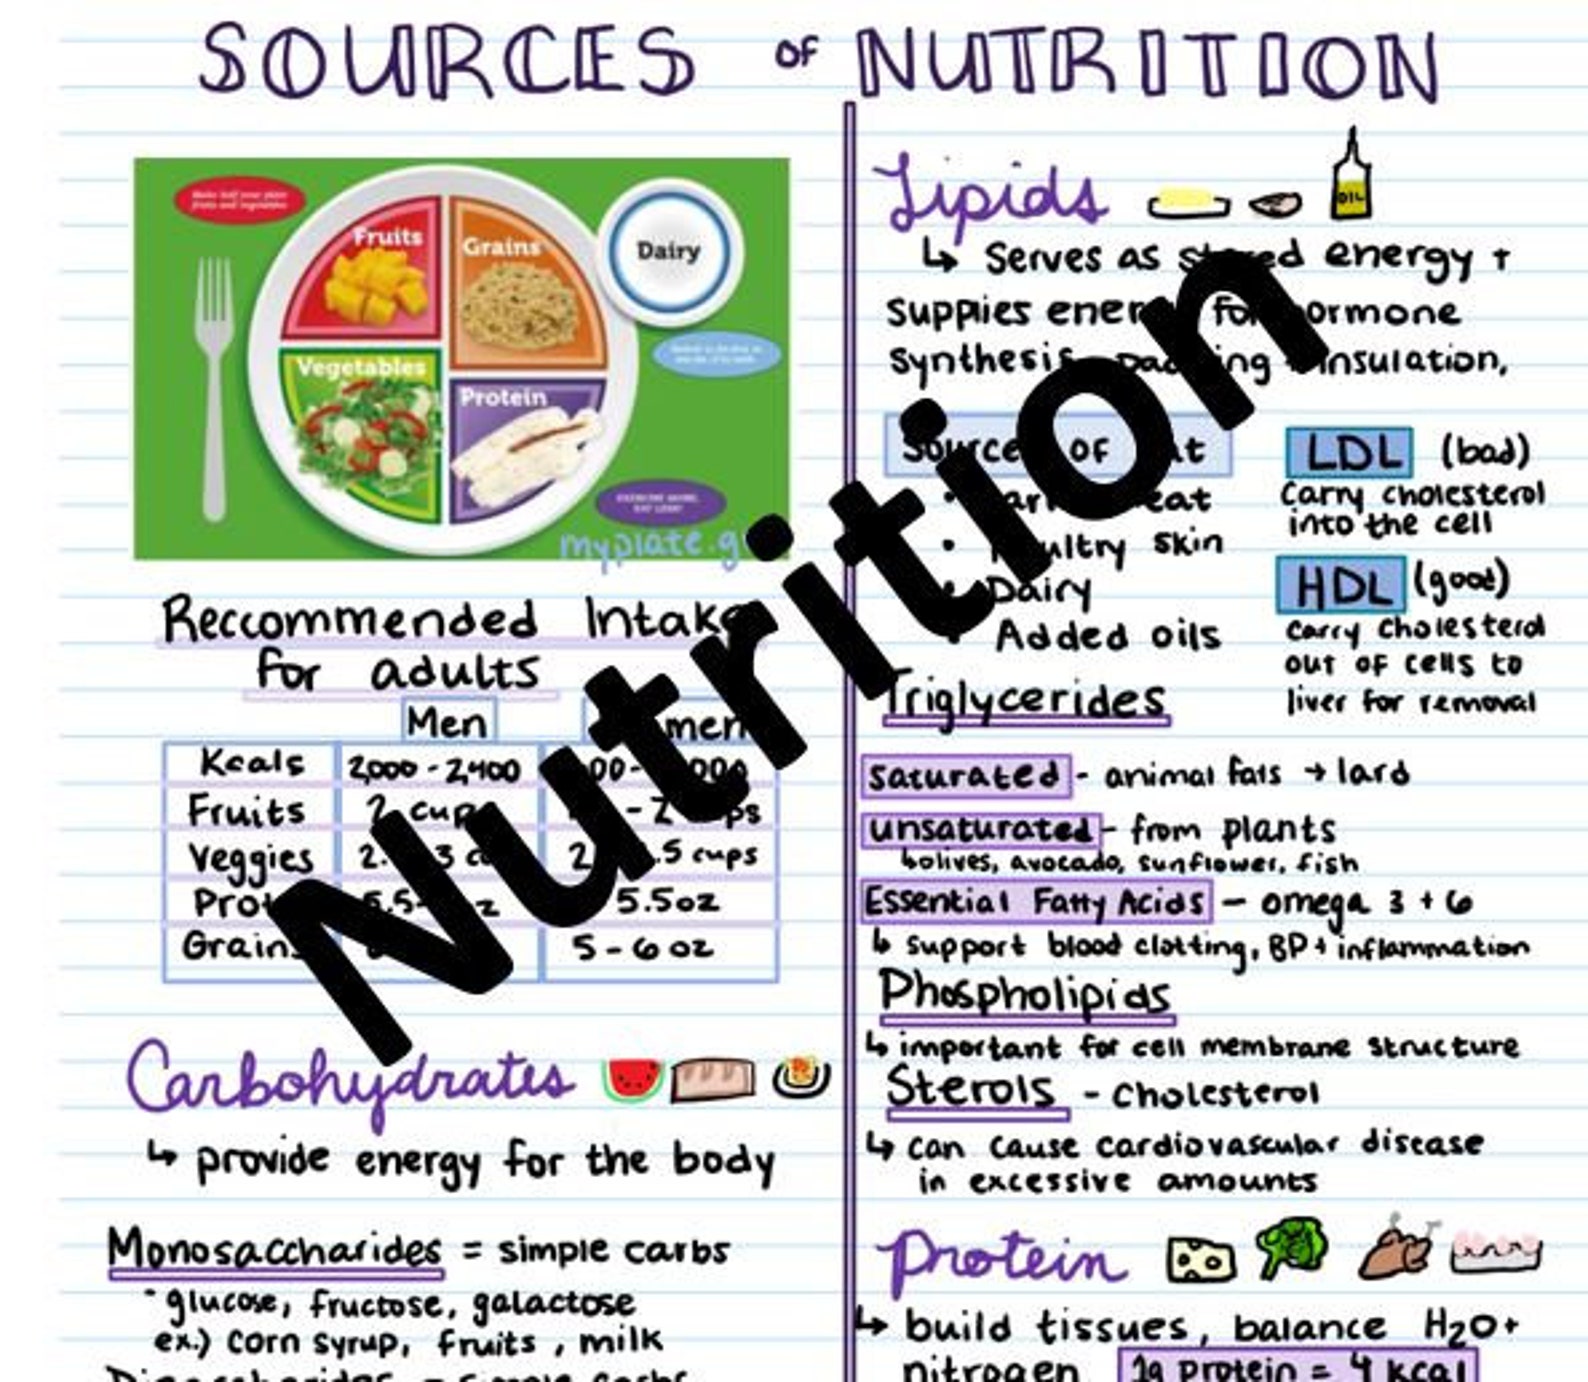 SOURCES OF NUTRITION
Fruits
Grains
Dairy
Vegetables
Protein
EXERCISE MORE,
EAT LESS!
Reccommended Intake
for adults
Men
Kcals 2,000-2,400
Fruits 2 cups
Veggies 3 .5 cups
5.5oz
Grains 5-6 oz
Carbohydrates
↳ provide energy for the body
Monosaccharides = simple carbs
glucose, fructose, galactose
ex.) corn syrup, fruits, milk
Lipids
OIL
↳ Serves as stored energy +
supplies energy for hormone
synthesis, padding + insulation,
Sources of
• Poultry skin
• Dairy
• Added oils
LDL (bad)
Carry cholesterol
into the cell
HDL (good)
carry cholesterol
out of cells to
liver for removal
Triglycerides
saturated - animal fats → lard
unsaturated - from plants
↳ olives, avocado, sunflower, fish
Essential Fatty Acids - omega 3 + 6
↳ support blood clotting, BP + inflammation
Phospholipids
↳ important for cell membrane structure
Sterols - cholesterol
↳ can cause cardiovascular disease
in excessive amounts
Protein
↳ build tissues, balance H2O +
nitrogen 1g protein = 4 kcal
Nutrition